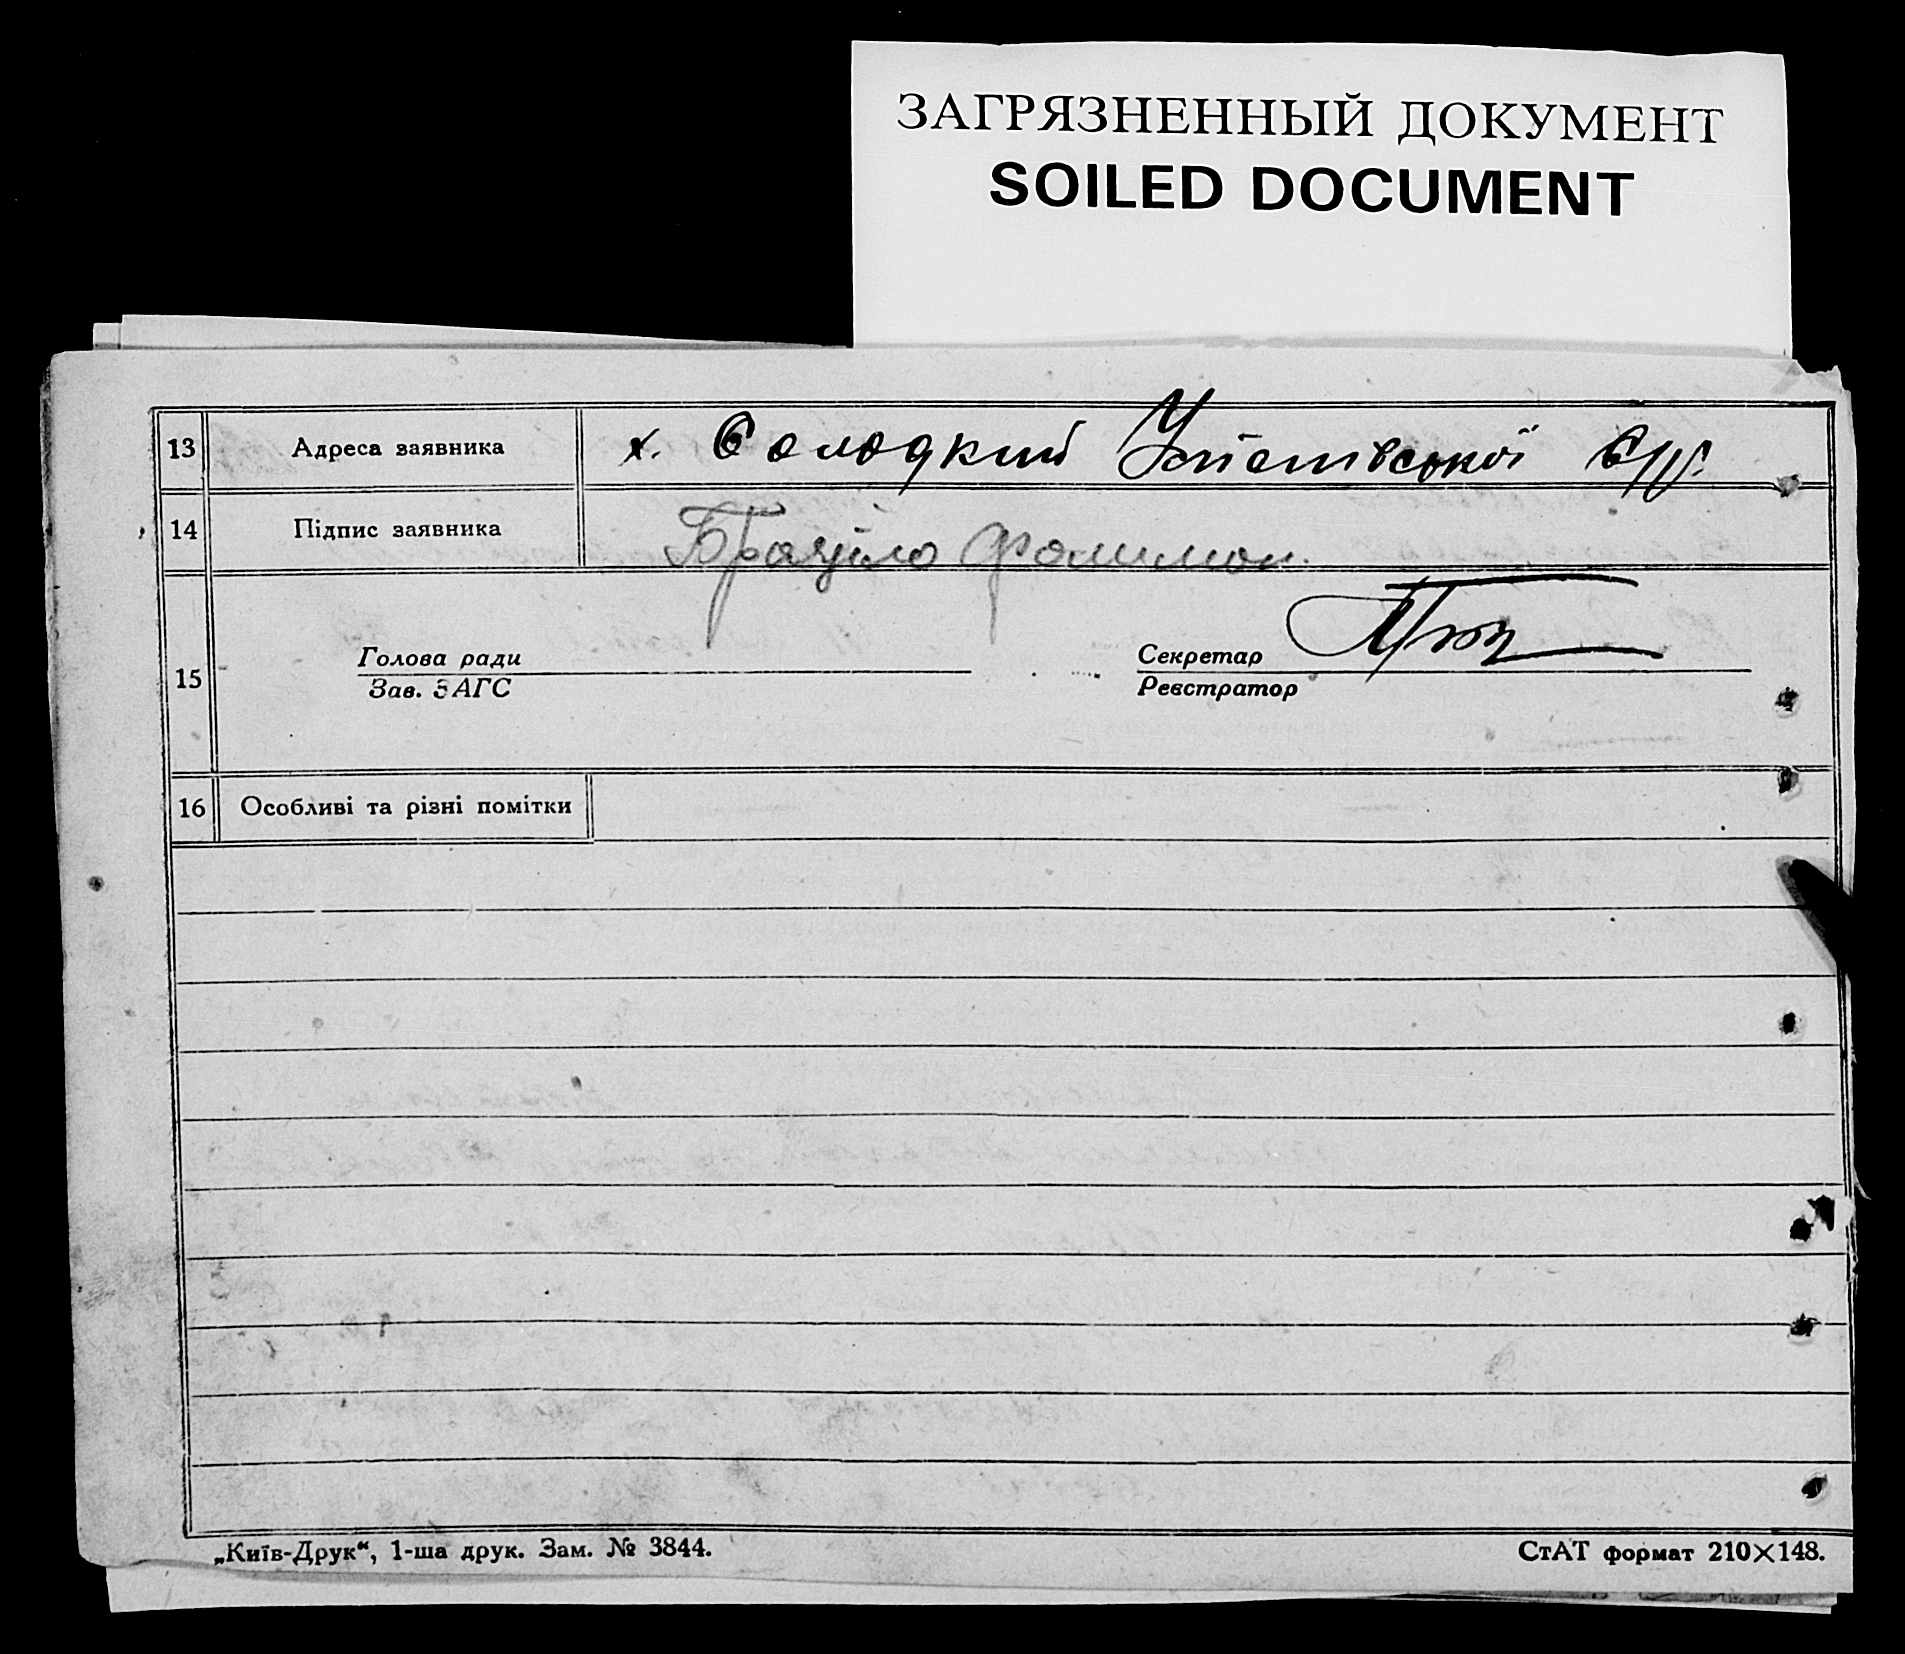 ЗАГРЯЗНЕННЫЙ ДОКУМЕНТ
SOILED DOCUMENT
13 Адреса заявника х. Солодкий с/р.
14 Підпис заявника
15 Голова ради Секретар
Зав. ЗАГС Реєстратор
16 Особливі та різні помітки
„Київ-Друк“, 1-ша друк. Зам. № 3844. СтАТ формат 210×148.